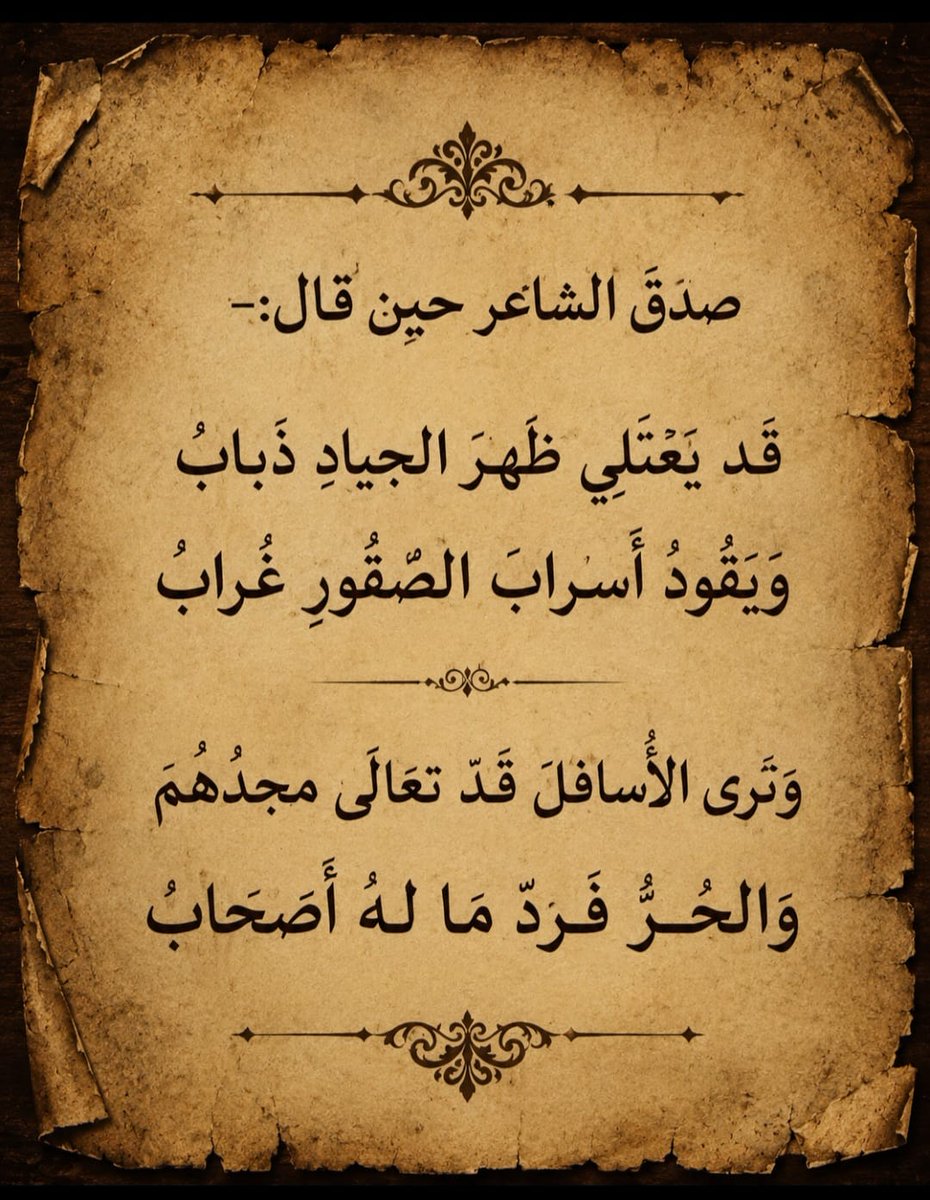 صدَقَ الشاعر حيِن قال:-
قَد يَعْتَلِي ظَهرَ الجيادِ ذَبابُ
وَيَقُودُ أَسرابَ الصّقُورِ غُرابُ
وَتَرى الأُسافلَ قَدّ تعَالَى مجدُهُمَ
وَالحُرُّ فَردّ مَا لهُ أَصَحَابُ